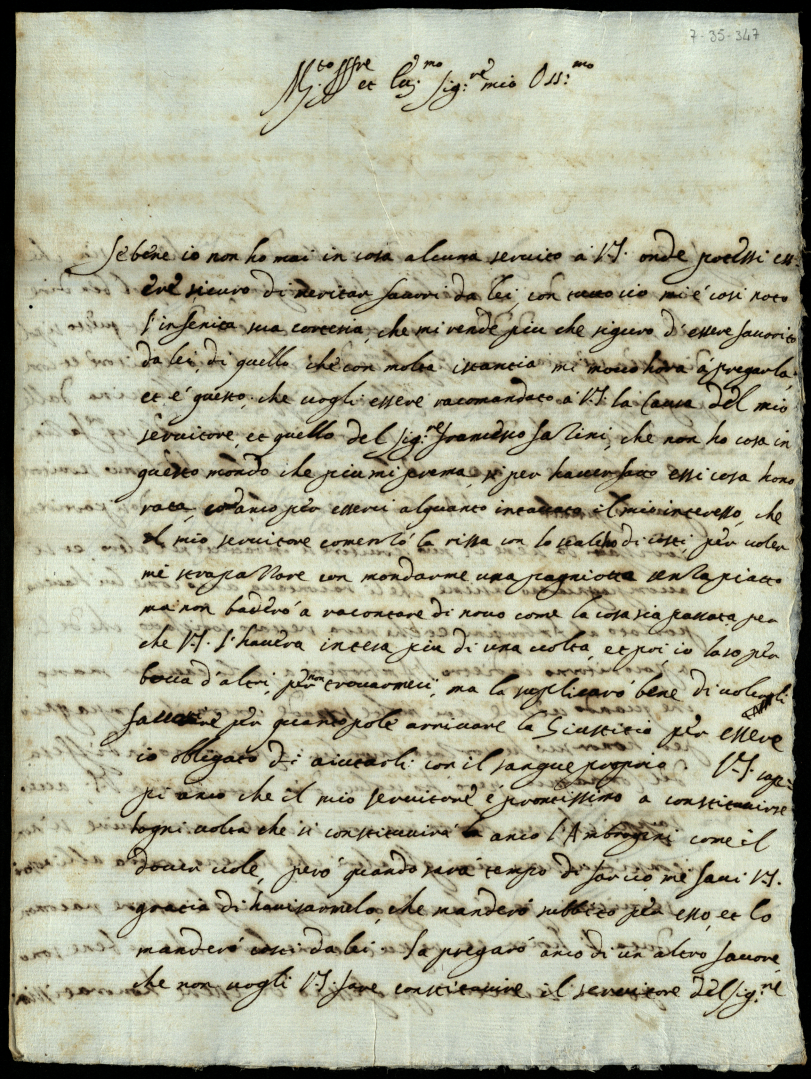 7-35-347
M.to Ill.re et Ecc.mo Sig.re mio Oss.mo
Se bene io non ho mai in cosa alcuna servito à V.S. onde potessi es-
sere sicuro di meritar favori da lei con tutto ciò mi è così noto
l'infenita sua cortesia, che mi rende più che siguro d'essere favorito
da lei, di quello che con molta istantia mi movo hora à pregarla,
et é questo, che vogli essere racomandato à V.S. la Causa del mio
servitore, et quello del Sig.re Francesco Salini, che non ho cosa in
questo mondo che più mi prema, si per haver fatto essi cosa hono
rata, com'anco per esservi alquanto intaccato il mio interesso, che
el mio servitore comenzó la rissa con lo scalco di costi, per voler
me strapazzare con mondarme una pagniotta senza piatto
ma non baderó a racontare di novo come la cosa sia passata per
che V.S. l'havera intesa piu di una volta, et poi, io la so per
bocca d'altri, per non trovarmevi, ma la suplicaró bene di volerli
favorire per quanto pole arrivare la Giustitia per essere
io obligato di aiutarli con il sangue proprio V.S. sap=
pi anco che il mio servitore é prontissimo a constituirse
ogni volta che si constituirá anco l'Ambrogini come il
dover vole, peró quando sará tempo di far ció me favi V.S.
gratia di havisarmelo, che manderó subbito per esso, et lo
manderó costi da lei. La pregaró anco di un altro favore,
che non vogli V.S. fare constituire il servitore del Sig.re